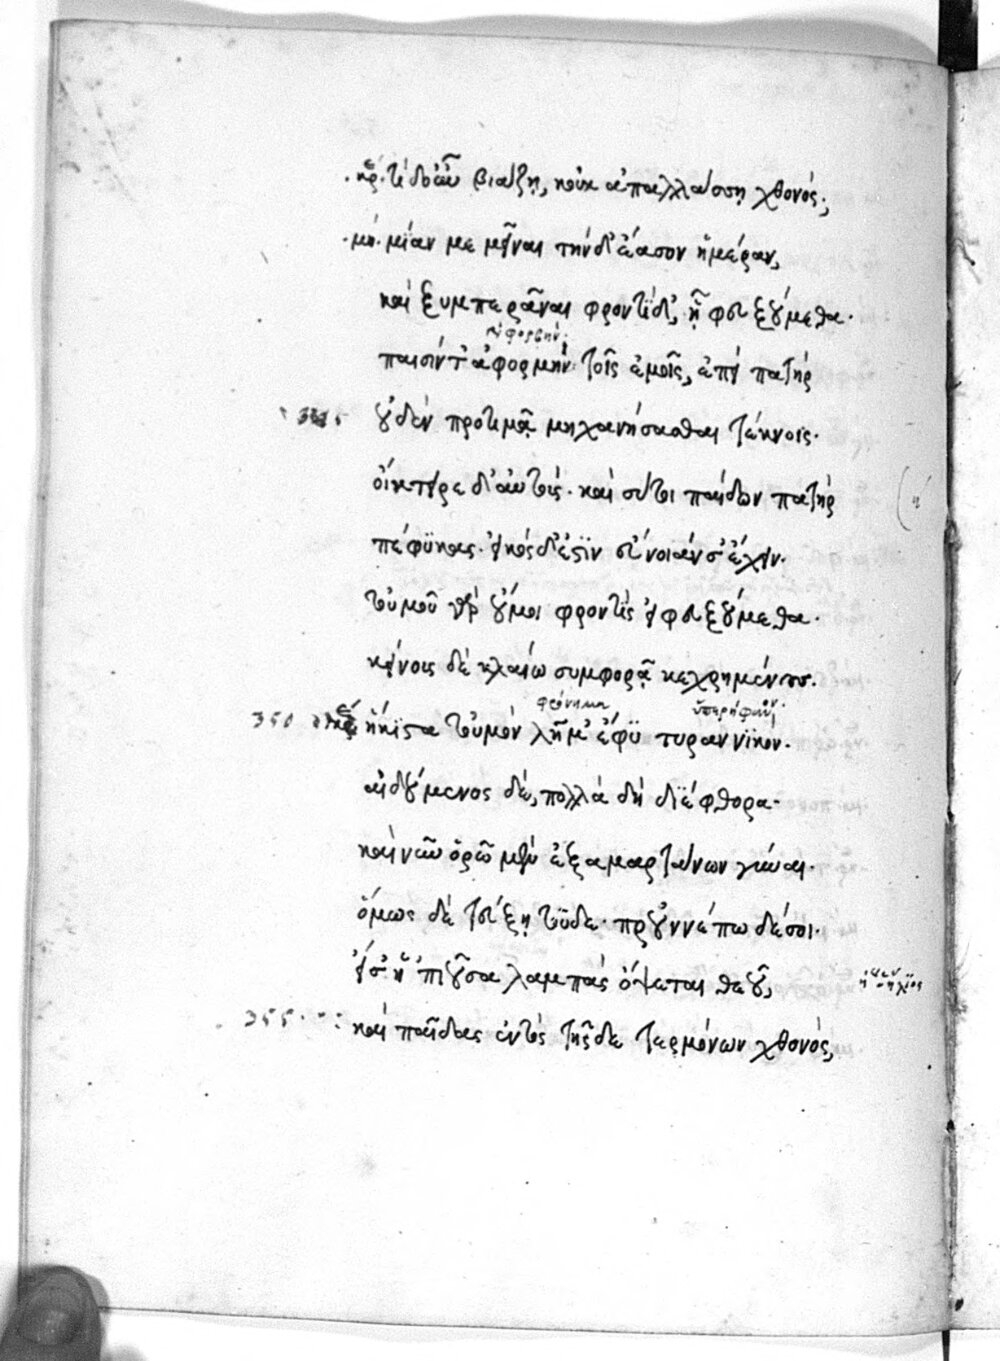 κρ. τί δ' οὖν βιάζῃ, κοὐκ ἀπαλλάσσῃ χθονός;
μή. μίαν με μεῖναι τήνδ' ἔασον ἡμέραν,
καὶ ξυμπερᾶναι φροντίδ', ᾗ φευξούμεθα.
παισίν τ' ἀφορμὴν τοῖς ἐμοῖς, ἐπεὶ πατὴρ
345 οὐδὲν προτιμᾷ μηχανήσασθαι τέκνοις.
οἴκτειρε δ' αὐτούς. καὶ σύ τοι παίδων πατὴρ
πέφυκας. εἰκὸς δ' ἐστὶν εὔνοιάν σ' ἔχειν.
τοὐμοῦ γὰρ οὔ μοι φροντὶς εἰ φευξούμεθα.
κείνους δὲ κλαίω συμφορᾷ κεχρημένους.
φρόνημα
350 κρ. ἥκιστα τοὐμὸν λῆμ' ἔφυ τυραννικόν.
αἰδούμενος δὲ, πολλὰ δὴ διέφθορα.
καὶ νῦν ὁρῶ μὲν ἐξαμαρτάνων γύναι.
ὅμως δὲ τεύξῃ τοῦδε. προὐννέπω δέ σοι.
εἴ σ' ἡ 'πιοῦσα λαμπὰς ὄψεται θεοῦ,
355 καὶ παῖδας ἐντὸς τῆσδε τερμόνων χθονός,